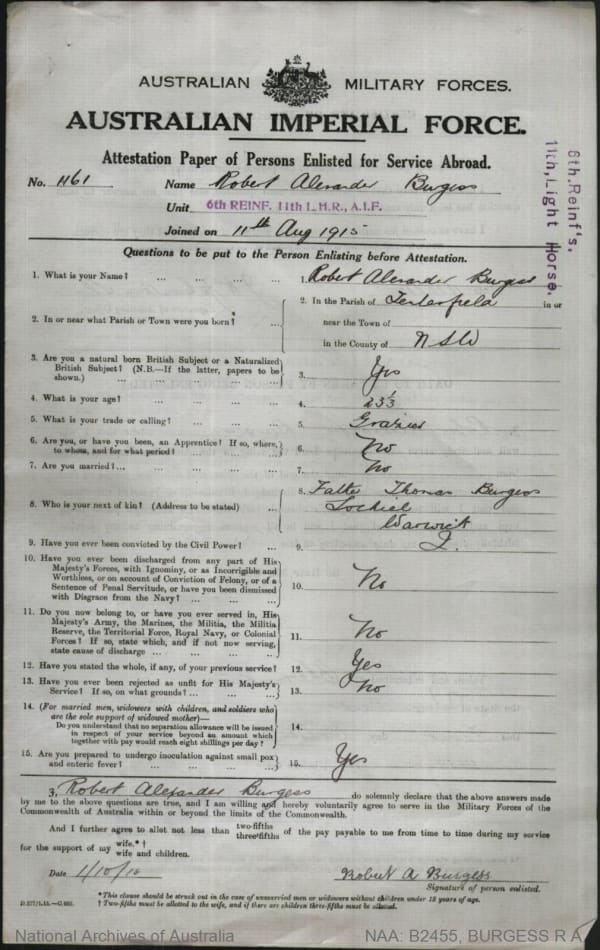 AUSTRALIAN MILITARY FORCES.
AUSTRALIAN IMPERIAL FORCE.
Attestation Paper of Persons Enlisted for Service Abroad.
6th. Reinf's.
11th, Light Horse.
No. 1161 Name Robert Alexander Burgess
Unit 6th REINF. 11th L.H.R., A.I.F.
Joined on 11th Aug 1915
Questions to be put to the Person Enlisting before Attestation.
1. What is your Name? ... ... ... ... 1. Robert Alexander Burgess
2. In or near what Parish or Town were you born? ... 2. In the Parish of Tenterfield in or
near the Town of
in the County of NSW
3. Are you a natural born British Subject or a Naturalized
British Subject? (N.B.—If the latter, papers to be
shown.) ... ... ... ... 3. Yes
4. What is your age? ... ... ... ... 4. 23
5. What is your trade or calling? ... ... ... 5. Grazier
6. Are you, or have you been, an Apprentice? If so, where,
to whom, and for what period? ... ... ... 6. No
7. Are you married? ... ... ... ... 7. No
8. Who is your next of kin? (Address to be stated) ... 8. Father Thomas Burgess
Lochiel
Warwick
Q.
9. Have you ever been convicted by the Civil Power? ... 9.
10. Have you ever been discharged from any part of His
Majesty's Forces, with Ignominy, or as Incorrigible and
Worthless, or on account of Conviction of Felony, or of a
Sentence of Penal Servitude, or have you been dismissed
with Disgrace from the Navy? ... ... ... 10. No
11. Do you now belong to, or have you ever served in, His
Majesty's Army, the Marines, the Militia, the Militia
Reserve, the Territorial Force, Royal Navy, or Colonial
Forces? If so, state which, and if not now serving,
state cause of discharge ... ... ... 11. No
12. Have you stated the whole, if any, of your previous service? 12. Yes
13. Have you ever been rejected as unfit for His Majesty's
Service? If so, on what grounds? ... ... ... 13. No
14. (For married men, widowers with children, and soldiers who
are the sole support of widowed mother)—
Do you understand that no separation allowance will be issued
in respect of your service beyond an amount which
together with pay would reach eight shillings per day? 14.
15. Are you prepared to undergo inoculation against small pox
and enteric fever? ... ... ... ... 15. Yes
I, Robert Alexander Burgess do solemnly declare that the above answers made
by me to the above questions are true, and I am willing and hereby voluntarily agree to serve in the Military Forces of the
Commonwealth of Australia within or beyond the limits of the Commonwealth.
And I further agree to allot not less than two-fifths three-fifths of the pay payable to me from time to time during my service
for the support of my wife.*† wife and children.
Date 1/10/15 Robert A Burgess
Signature of person enlisted.
*This clause should be struck out in the case of unmarried men or widowers without children under 18 years of age.
† Two-fifths must be allotted to the wife, and if there are children three-fifths must be allotted.
National Archives of Australia NAA: B2455, BURGESS R A